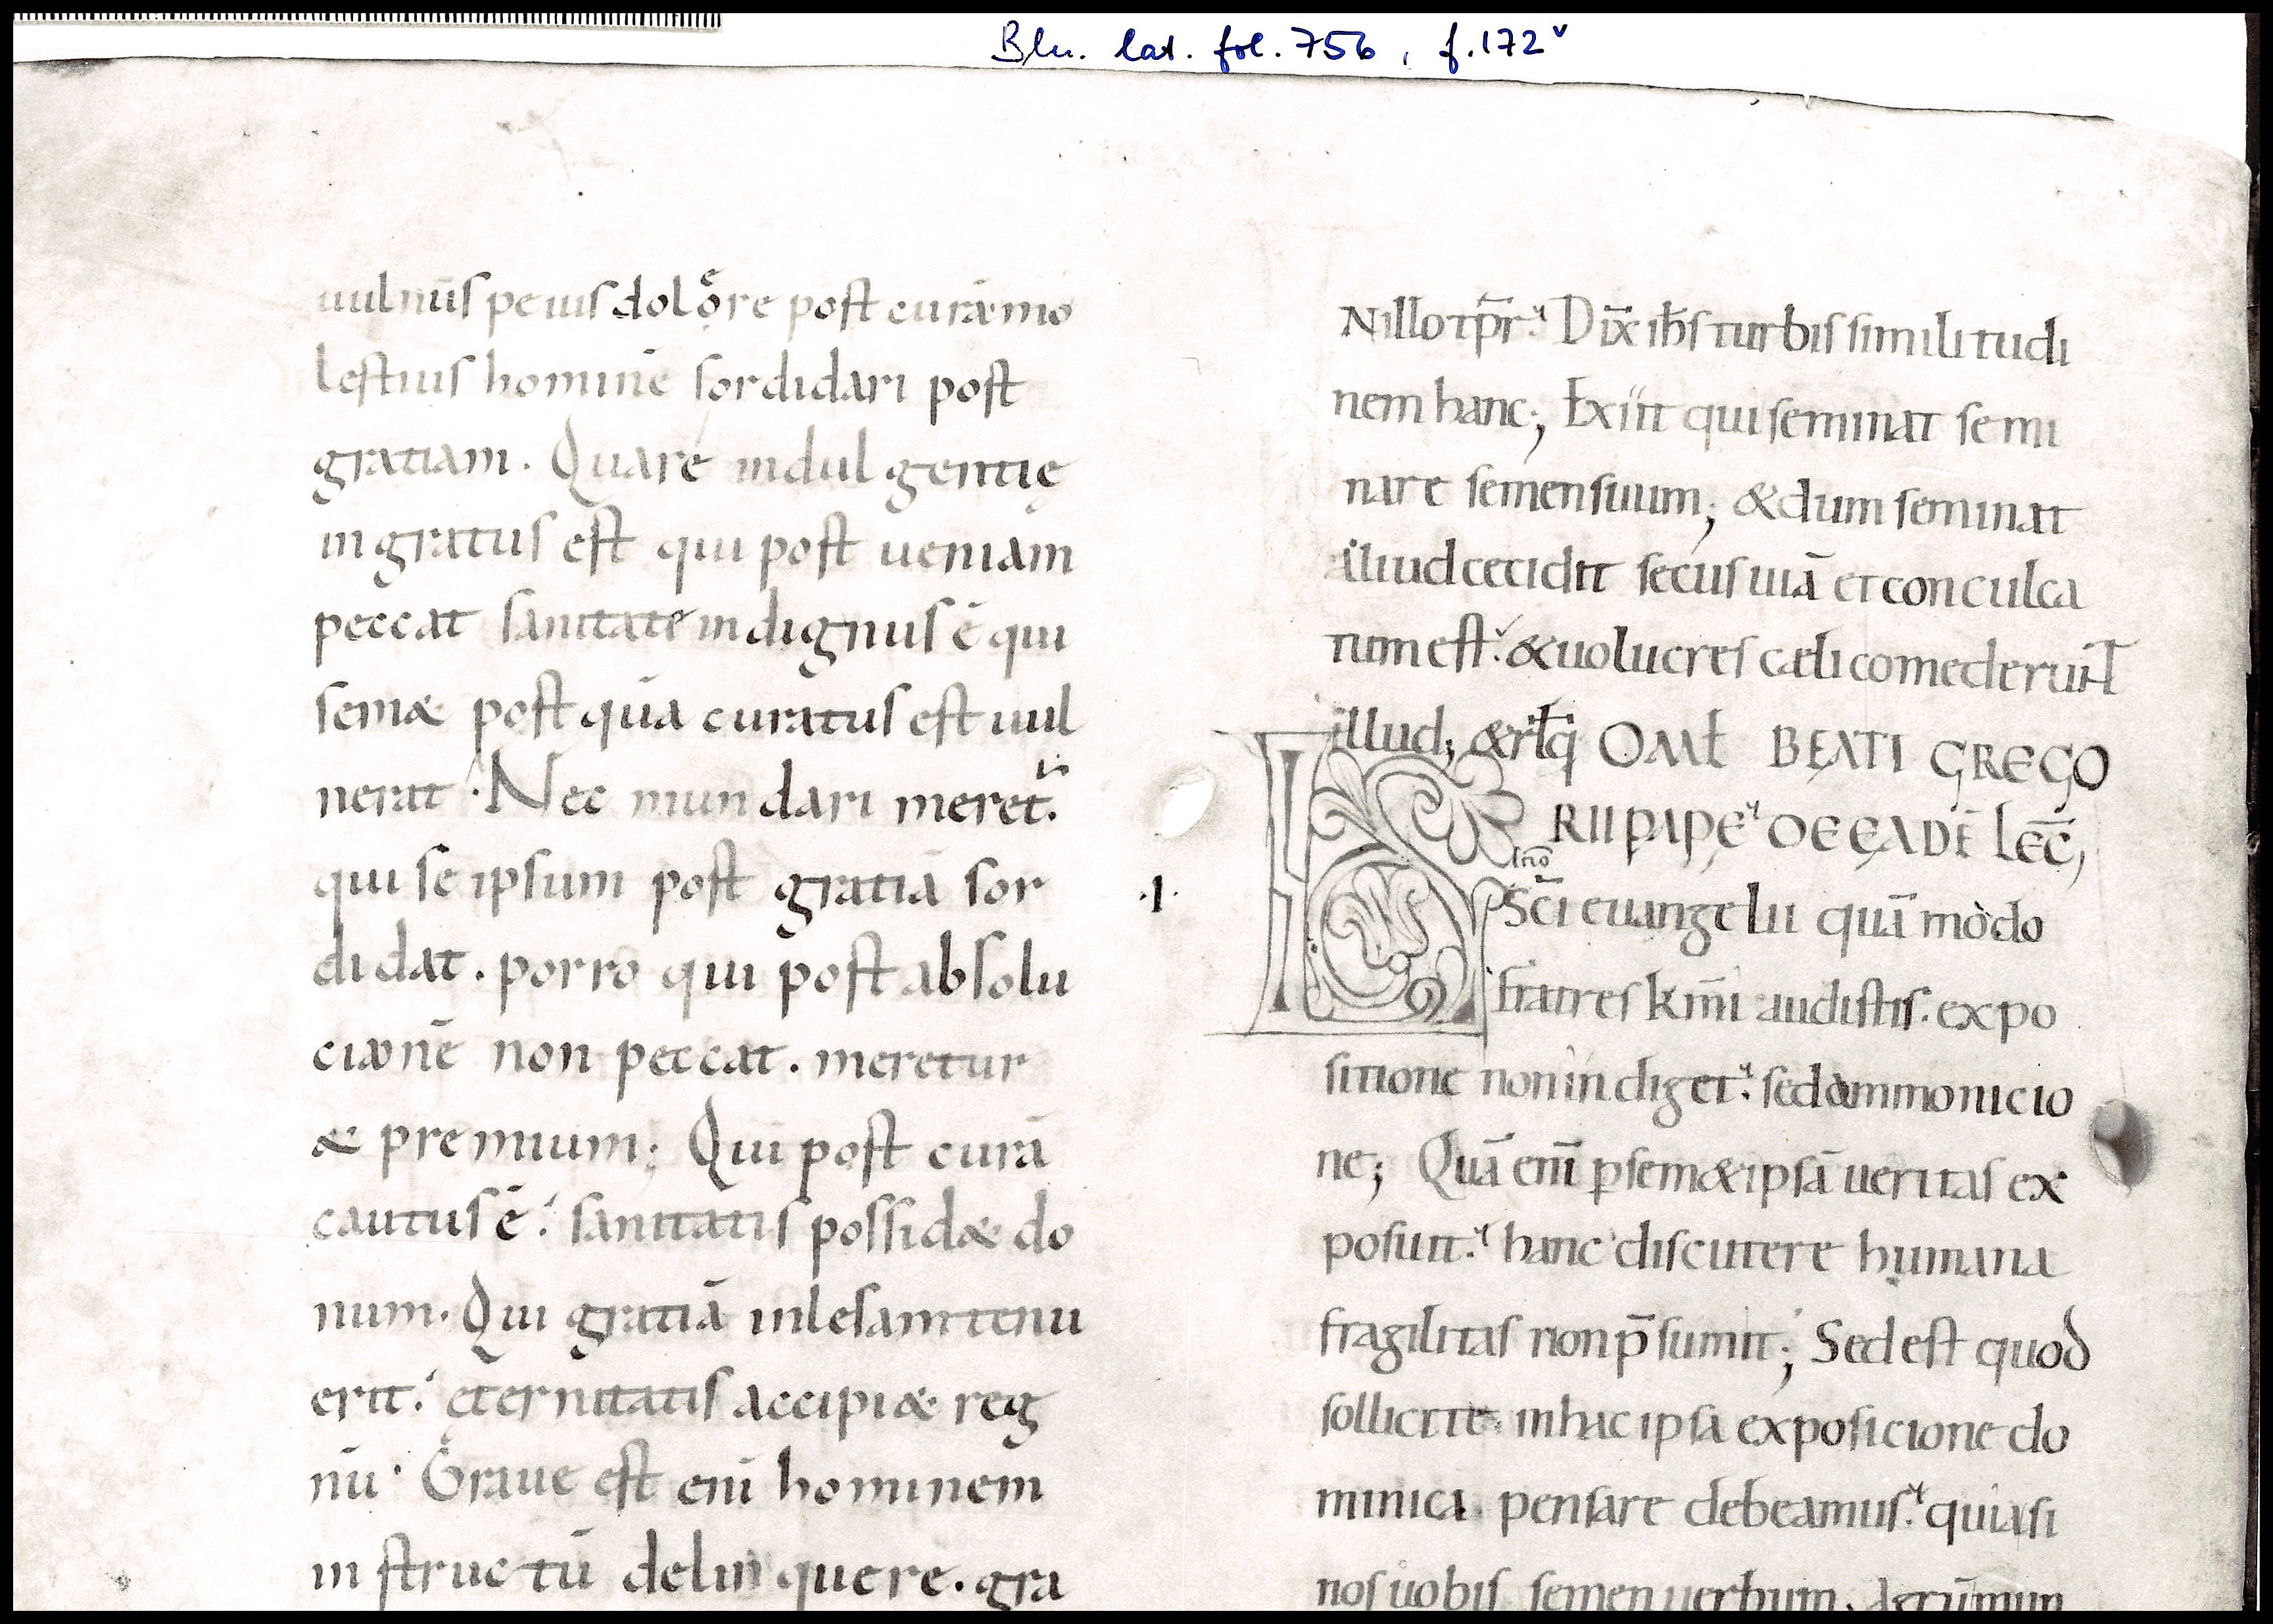 Bln. lat. fol. 756, f. 172v
uulnus peius dolore post curā mo
lestius hominē sordidari post
gratiam. Quare indulgentię
ingratus est qui post ueniam
peccat sanitate indignus ē qui
semæ postquā curatus est uul
nerat. Nec mundari meret
qui se ipsum post gratiā sor
didat. porro qui post absolu
cionē non peccat. meretur
& premium; Qui post curā
cautus ē. sanitatis possidæ do
num. Qui gratiā inlesam tenu
erit. ęternitatis accipiæ reg
nū. Graue est enī hominem
instructū delinquere. gra
N illo tp̄r. Dix̄ ih̄s turbis similitudi
nem hanc; Exiit qui seminat semi
nare semen suum; & dum seminat
aliud cecidit secus uiā et conculca
tum est. & uolucres cæli comederunt
illud; & rłq OMŁ BEATI GREGO
RII PAPĘ DE EADĒ LEC̄;
ino
.I.
Sc̄i euangelii quā modo
fratres km̄i audistis. expo
sitione non indiget. sed ammonicio
ne; Quā enī p semæipsā ueritas ex
posuit. hanc discutere humana
fragilitas non p̄sumit; Sed est quod
sollicite in hac ipsa exposicione do
minica. pensare debeamus. quia si
nos uobis semen uerbum. Agrū mun